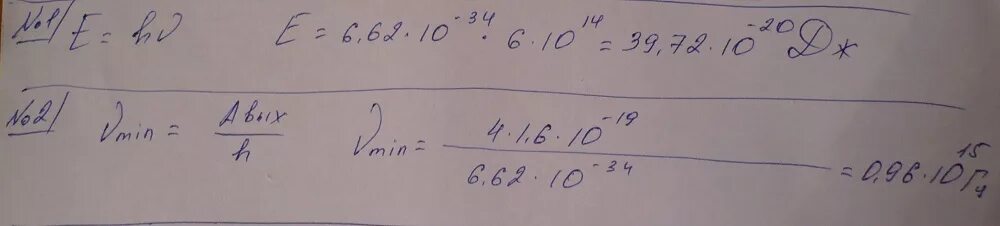 №1 E = hν E = 6,62·10⁻³⁴·6·10¹⁴ = 39,72·10⁻²⁰ Дж
№2 νmin = Aвых/h νmin = 4·1,6·10⁻¹⁹/6,62·10⁻³⁴ = 0,96·10¹⁵ Гц